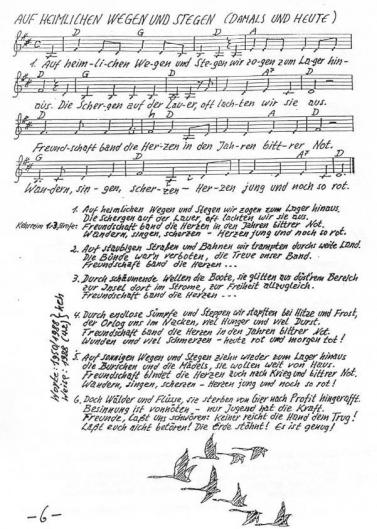 AUF HEIMLICHEN WEGEN UND STEGEN (DAMALS UND HEUTE)
D G D
1. Auf heim-li-chen We-gen und Ste-gen wir zo-gen zum Lager hin-
D G D A7 D
aus. Die Scher-gen auf der Lau-er, oft lach-ten wir sie aus.
D h D A
Freund-schaft band die Her-zen in den Jah-ren bitt-rer Not.
G D A7 D
Wan-dern, sin-gen, scher-zen – Her-zen jung und noch so rot.
1. Auf heimlichen Wegen und Stegen wir zogen zum Lager hinaus.
Die Schergen auf der Lauer, oft lachten wir sie aus.
Freundschaft band die Herzen in den Jahren bittrer Not.
Wandern, singen, scherzen – Herzen jung und noch so rot.
2. Auf staubigen Straßen und Bahnen wir trampten durchs weite Land.
Die Bünde war'n verboten, die Treue unser Band.
Freundschaft band die Herzen ...
3. Durch schäumende Wellen die Boote, sie glitten aus düstrem Bereich
zur Insel dort im Strome, zur Freiheit allzugleich.
Freundschaft band die Herzen ...
4. Durch endlose Sümpfe und Steppen wir stapften bei Hitze und Frost,
der Orlog uns im Nacken, viel Hunger und viel Durst.
Freundschaft band die Herzen in den Jahren bittrer Not.
Wunden und viel Schmerzen – heute rot und morgen tot!
5. Auf sonnigen Wegen und Stegen ziehn wieder zum Lager hinaus
die Burschen und die Mädels, sie wollen weit von Haus.
Freundschaft bindet die Herzen auch nach Krieg und bittrer Not.
Wandern, singen, scherzen – Herzen jung und noch so rot!
6. Doch Wälder und Flüsse, sie sterben von Gier nach Profit hingerafft.
Besinnung ist vonnöten – nur Jugend hat die Kraft.
Freunde, laßt uns schwören: Keiner reicht die Hand dem Trug!
Laßt euch nicht betören! Die Erde stöhnt! Es ist genug!
–6–